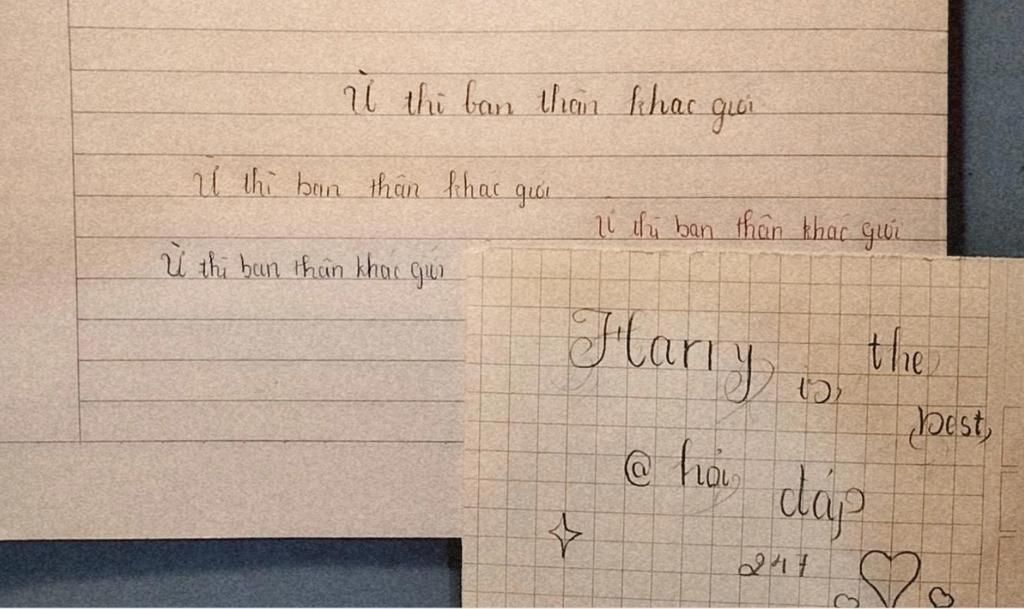 Ừ thì bạn thân khác giới
Ừ thì bạn thân khác giới
Ừ thì bạn thân khác giới
Ừ thì bạn thân khác giới
Harry is the
best,
@ hỏi đáp
247